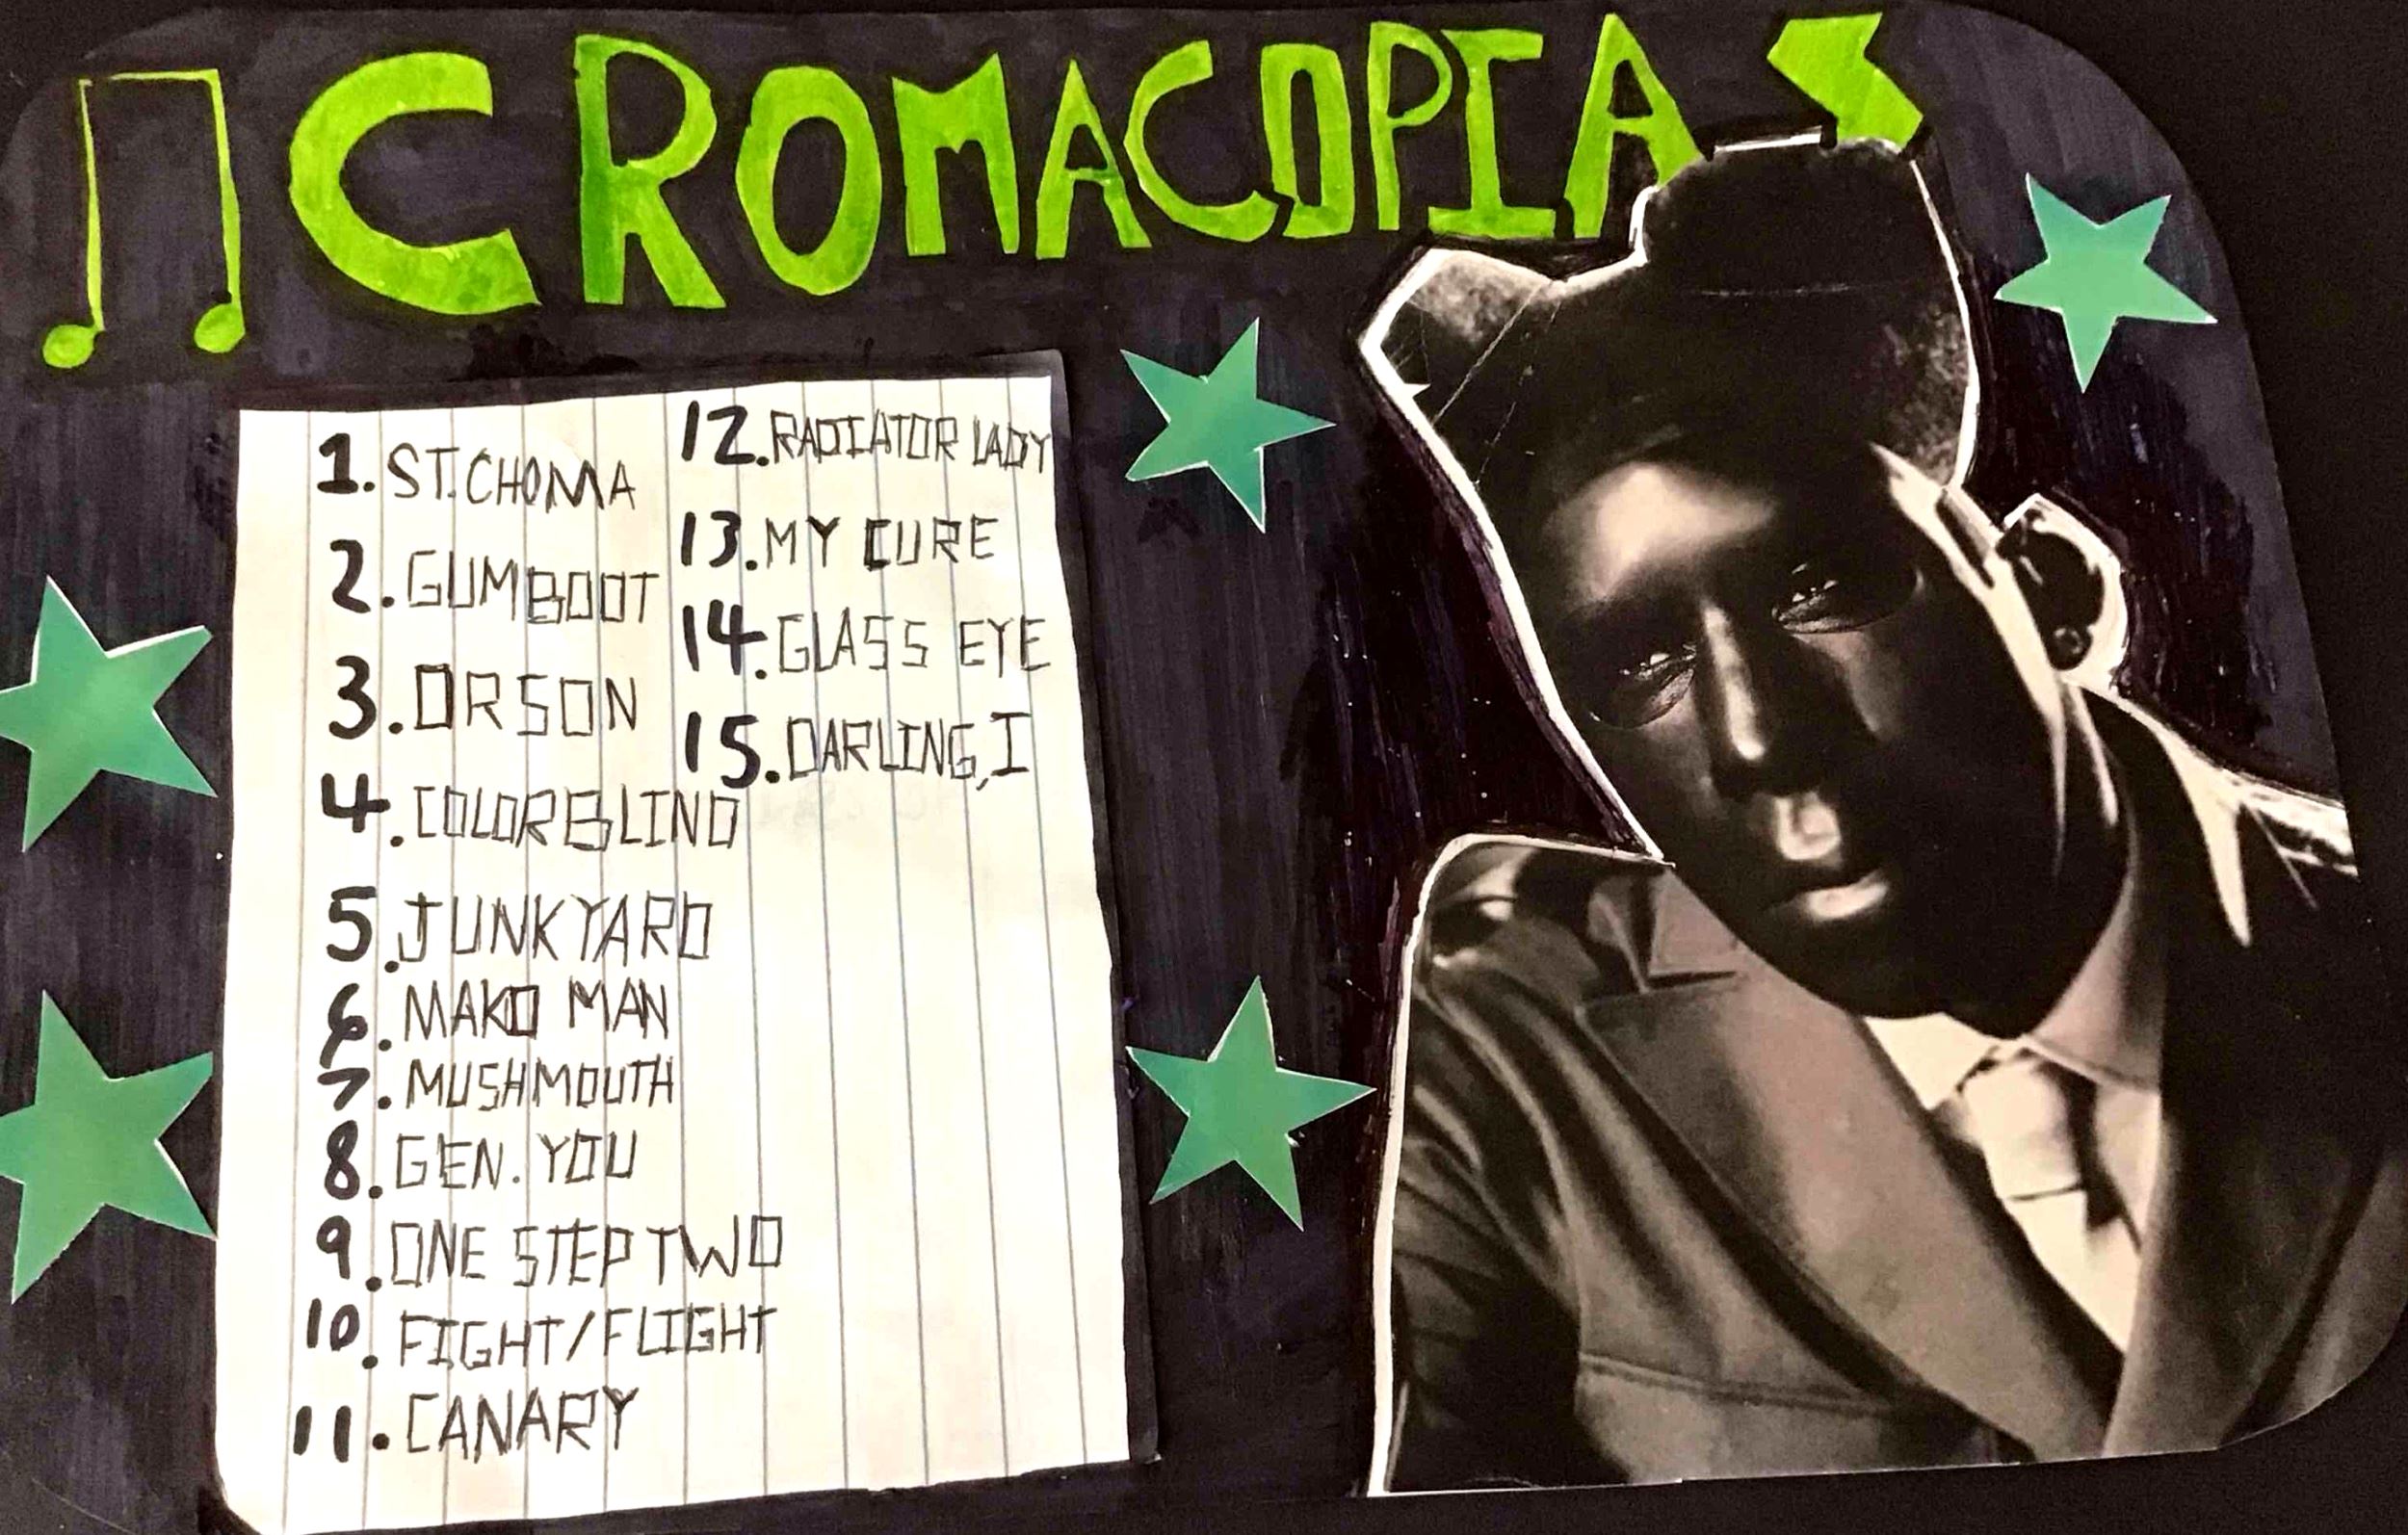 CROMACOPIAS
1. ST. CHOMA
2. GUMBOOT
3. ORSON
4. COLORBLIND
5. JUNKYARD
6. MAKO MAN
7. MUSHMOUTH
8. GEN. YOU
9. ONE STEP TWO
10. FIGHT/FLIGHT
11. CANARY
12. RADIATOR LADY
13. MY CURE
14. GLASS EYE
15. DARLING, I